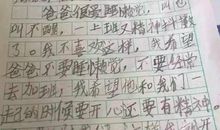 爸爸很爱睡懒觉,
叫不醒,一上班又精神抖擞
了。我不喜欢这样,我希望
爸爸不要睡懒觉,不要经常
去加班,我希望他和我们一
起的时候要开心还要有精神。